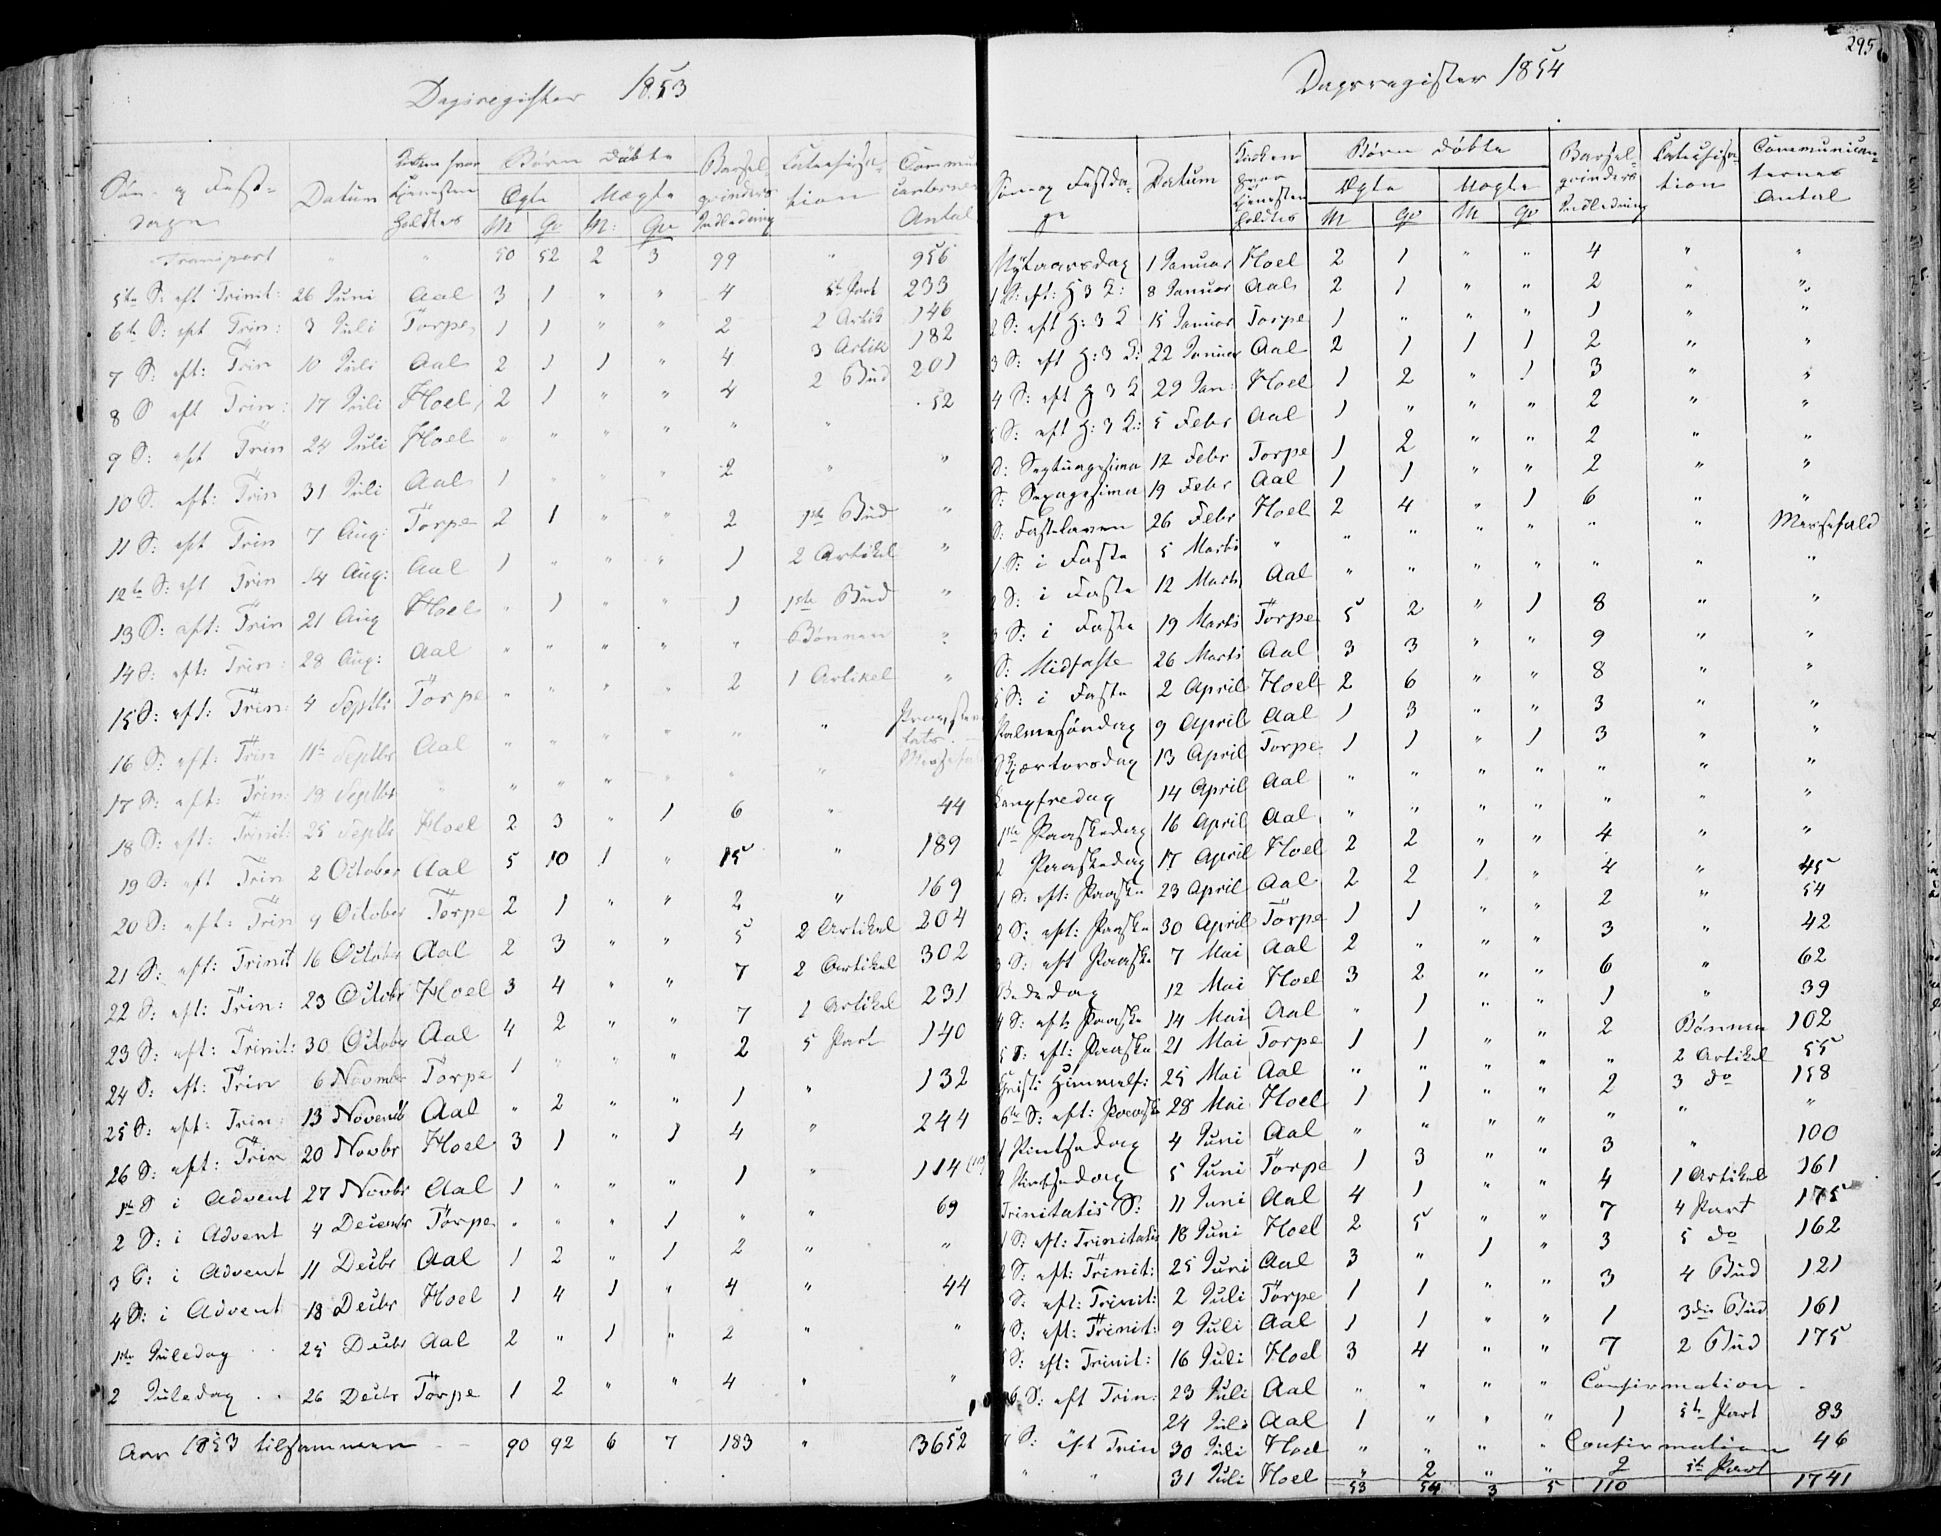 Dagsregister 1853
Søn- og Fest-dage | Datum | Kirken hvor Tjenesten holdtes | Børn døbte | Barselgrinders Indledning | Catechisation | Communicanternes Antal
Ægte | Uægte
M | Qv | M: | Qv
Transport " " 50 52 2 3 99 " 956
5te S: eft Trinit: 26 Juni Aal 3 1 " " 4 5te Part 233
6te S: eft Trin: 3 Juli Torpe 1 1 " " 2 2 Artik 146
7 S: eft: Trin 10 Juli Aal 2 1 1 " 4 3 Artik 182
8 S eft Trin: 17 Juli Hoel 2 1 " " 4 2 Bud 201
9 S: eft Trin 24 Juli Hoel " " " " " " 52
10 S. eft: Trin 31 Juli Aal 1 " " " 2 " "
11 S: eft Trin 7 Aug: Torpe 2 1 " " 2 1ste Bud "
12te S: eft Trin 14 Aug: Aal 1 " " " 1 2 Artikel "
13 S: eft: Trin 21 Aug Hoel " 1 " " 1 1ste Bud "
14 S: eft: Trin: 28 Aug: Aal " " " " " Bønnen "
15 S: eft: Trin: 4 Septbr Torpe " " " " 2 1 Artikel "
16 S: eft: Trin 11te Septbr Aal " " " " " "
17 S: eft: Trin: 18 Septbr " " " " " " " Messefald
18 S: eft: Trinit: 25 Septbr Hoel 2 3 " 1 6 " 44
19 S: eft Trin 2 October Aal 5 10 1 " 15 " 189
20 S: eft: Trin 9 October Torpe 2 1 " " 2 " 169
21 S: eft: Trinit 16 Octobr Aal 2 3 " " 5 2 Artikel 204
22 S: eft: Trin: 23 Octobr Hoel 3 4 " " 7 2 Artikel 302
23 S: eft: Trinit: 30 October Aal 4 2 " " 7 1 Artikel 231
24 S: eft: Trin 6 Novmbr Torpe 1 " " " 2 5 Part 140
25 S: eft: Trin: 13 Novemb Aal " 2 " " 1 " 132
26 S: eft: Trin 20 Novbr Hoel 3 1 " 1 4 " 244
1ste S i Advent 27 Novbr Aal 1 " " " 1 " 114
2 S: i Advent 4 Decembr Torpe " " " 1 " " 69
3 S: i Advent 11 Decbr Aal 1 2 " 1 2 " "
4 S: i Advent 18 Decbr Hoel 1 4 1 " 4 " 44
1ste Juledag 25 Decbr Aal 2 " 1 " 2 " "
2 Juledag 26 Decbr Torpe 1 2 " " 4 " "
Aar 1853 tilsammen 90 92 6 7 183 " 3652
295
Dagsregister 1854
Søn og Festdage | Datum | Kirken hvor Tjenesten holdtes | Børn døbte | Barselgrinders Indledning | Catechisation | Communicanternes Antal
Ægte | Uægte
M | Qv | M | Qv
Nytaarsdag 1 Januar Hoel 2 1 " " 4 " "
1 S: eft: H 3 K: 8 Januar Aal 2 1 " " 2 " "
2 S: eft H: 3 K 15 Januar Torpe 1 " " " 1 " "
3 S: eft H: 3 K: 22 Januar Aal 2 1 1 1 2 " "
4 S: eft H 3 K 29 Jan: Hoel 1 2 " 1 3 " "
5 S: eft H: 3 K: 5 Febr Aal 1 " " " 2 " "
S: Septuagesima 12 Febr Torpe 1 2 " " 2 " "
S: Sexagesima 19 Febr Aal 1 1 " " 2 " "
S: Fastelaven 26 Febr Hoel 2 4 " 1 6 " "
1 S: i Faste 5 Marts " " " " " " " Messefald
2 S: i Faste 12 Marts Aal " " " " " " "
3 S: i Faste 19 Marts Torpe 5 2 " 1 8 " "
S: Midfaste 26 Marts Aal 3 3 " " 9 " "
5 S: i Faste 2 April Hoel 2 6 " " 8 " "
Palmesøndag 9 April Aal 1 3 " " 3 " "
Skjærtorsdag 13 April Torpe 1 1 " 1 3 " "
Langfredag 14 April Aal " " " " " " "
1ste Paaskedag 16 April Aal " " " " " " "
2 Paaskedag 17 April Hoel 2 2 " " 4 " "
1 S: eft: Paaske 23 April Aal 2 2 1 " 4 " 45
2 S: eft: Paaske 30 April Torpe 1 1 " " 2 " 54
3 S: eft Paaske 7 Mai Aal 2 " " " 3 " 42
Bededag 12 Mai Hoel 3 2 " " 6 " 62
4 S: eft: Paaske 14 Mai Aal " 1 " " 1 " 39
5 S: eft: Paaske 21 Mai Torpe 1 1 " " 2 Bønnen 102
Christi Himmelf: 25 Mai Aal " " " " " 2 Artikel 55
6te S: eft: Paaske 28 Mai Hoel 1 1 " " 2 3 do 158
1 Pintsedag 4 Juni Aal " " " " " " "
2 Pintsedag 5 Juni Torpe 1 3 " " 3 " 100
Trinitatis S: 11 Juni Aal 4 1 " " 4 1 Artikel 161
1 S: eft: Trinitatis 18 Juni Hoel 2 5 " " 7 4 Part 175
2 S: eft: Trinit: 25 Juni Aal 3 " 1 " 3 5 do 162
3 S: eft: Trinit: 2 Juli Torpe 1 1 " " 3 4 Bud 121
4 S: eft: Trinit: 9 Juli Aal 1 1 " " 1 3die Bud 161
5 S: eft: Trinit: 16 Juli Hoel 3 4 " " 7 2 Bud 175
6 S: eft Trin: 23 Juli Aal " " " " Confirmation
24 Juli Aal 1 " " " 1 5te Part 83
7 S: eft Trin 30 Juli Hoel " " " " Confirmation 46
" " 31 Juli Hoel " 2 " " 2 5te Part
53 54 3 5 110 1741